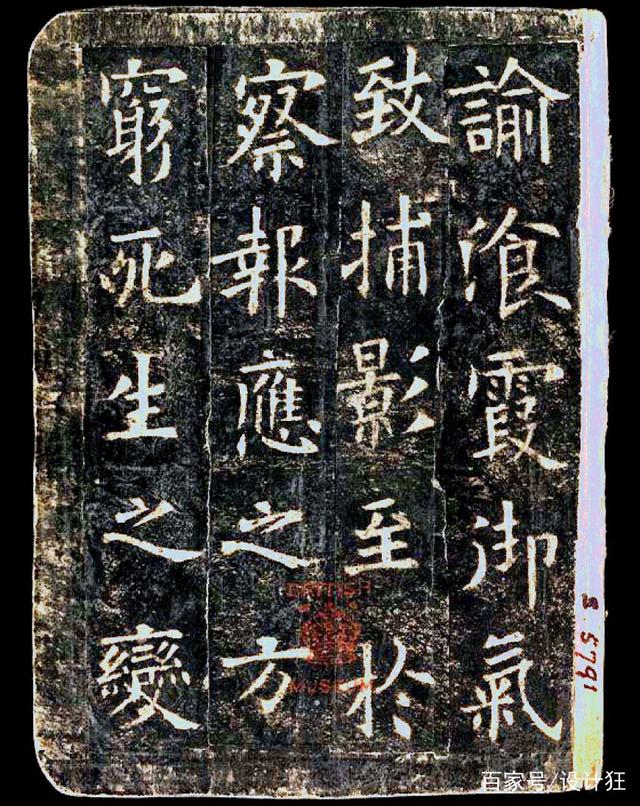 諭飡霞御氣
致捕影至於
察報應之方
窮死生之變
BRITISH
MUSEUM
S.5791
百家号/设计狂